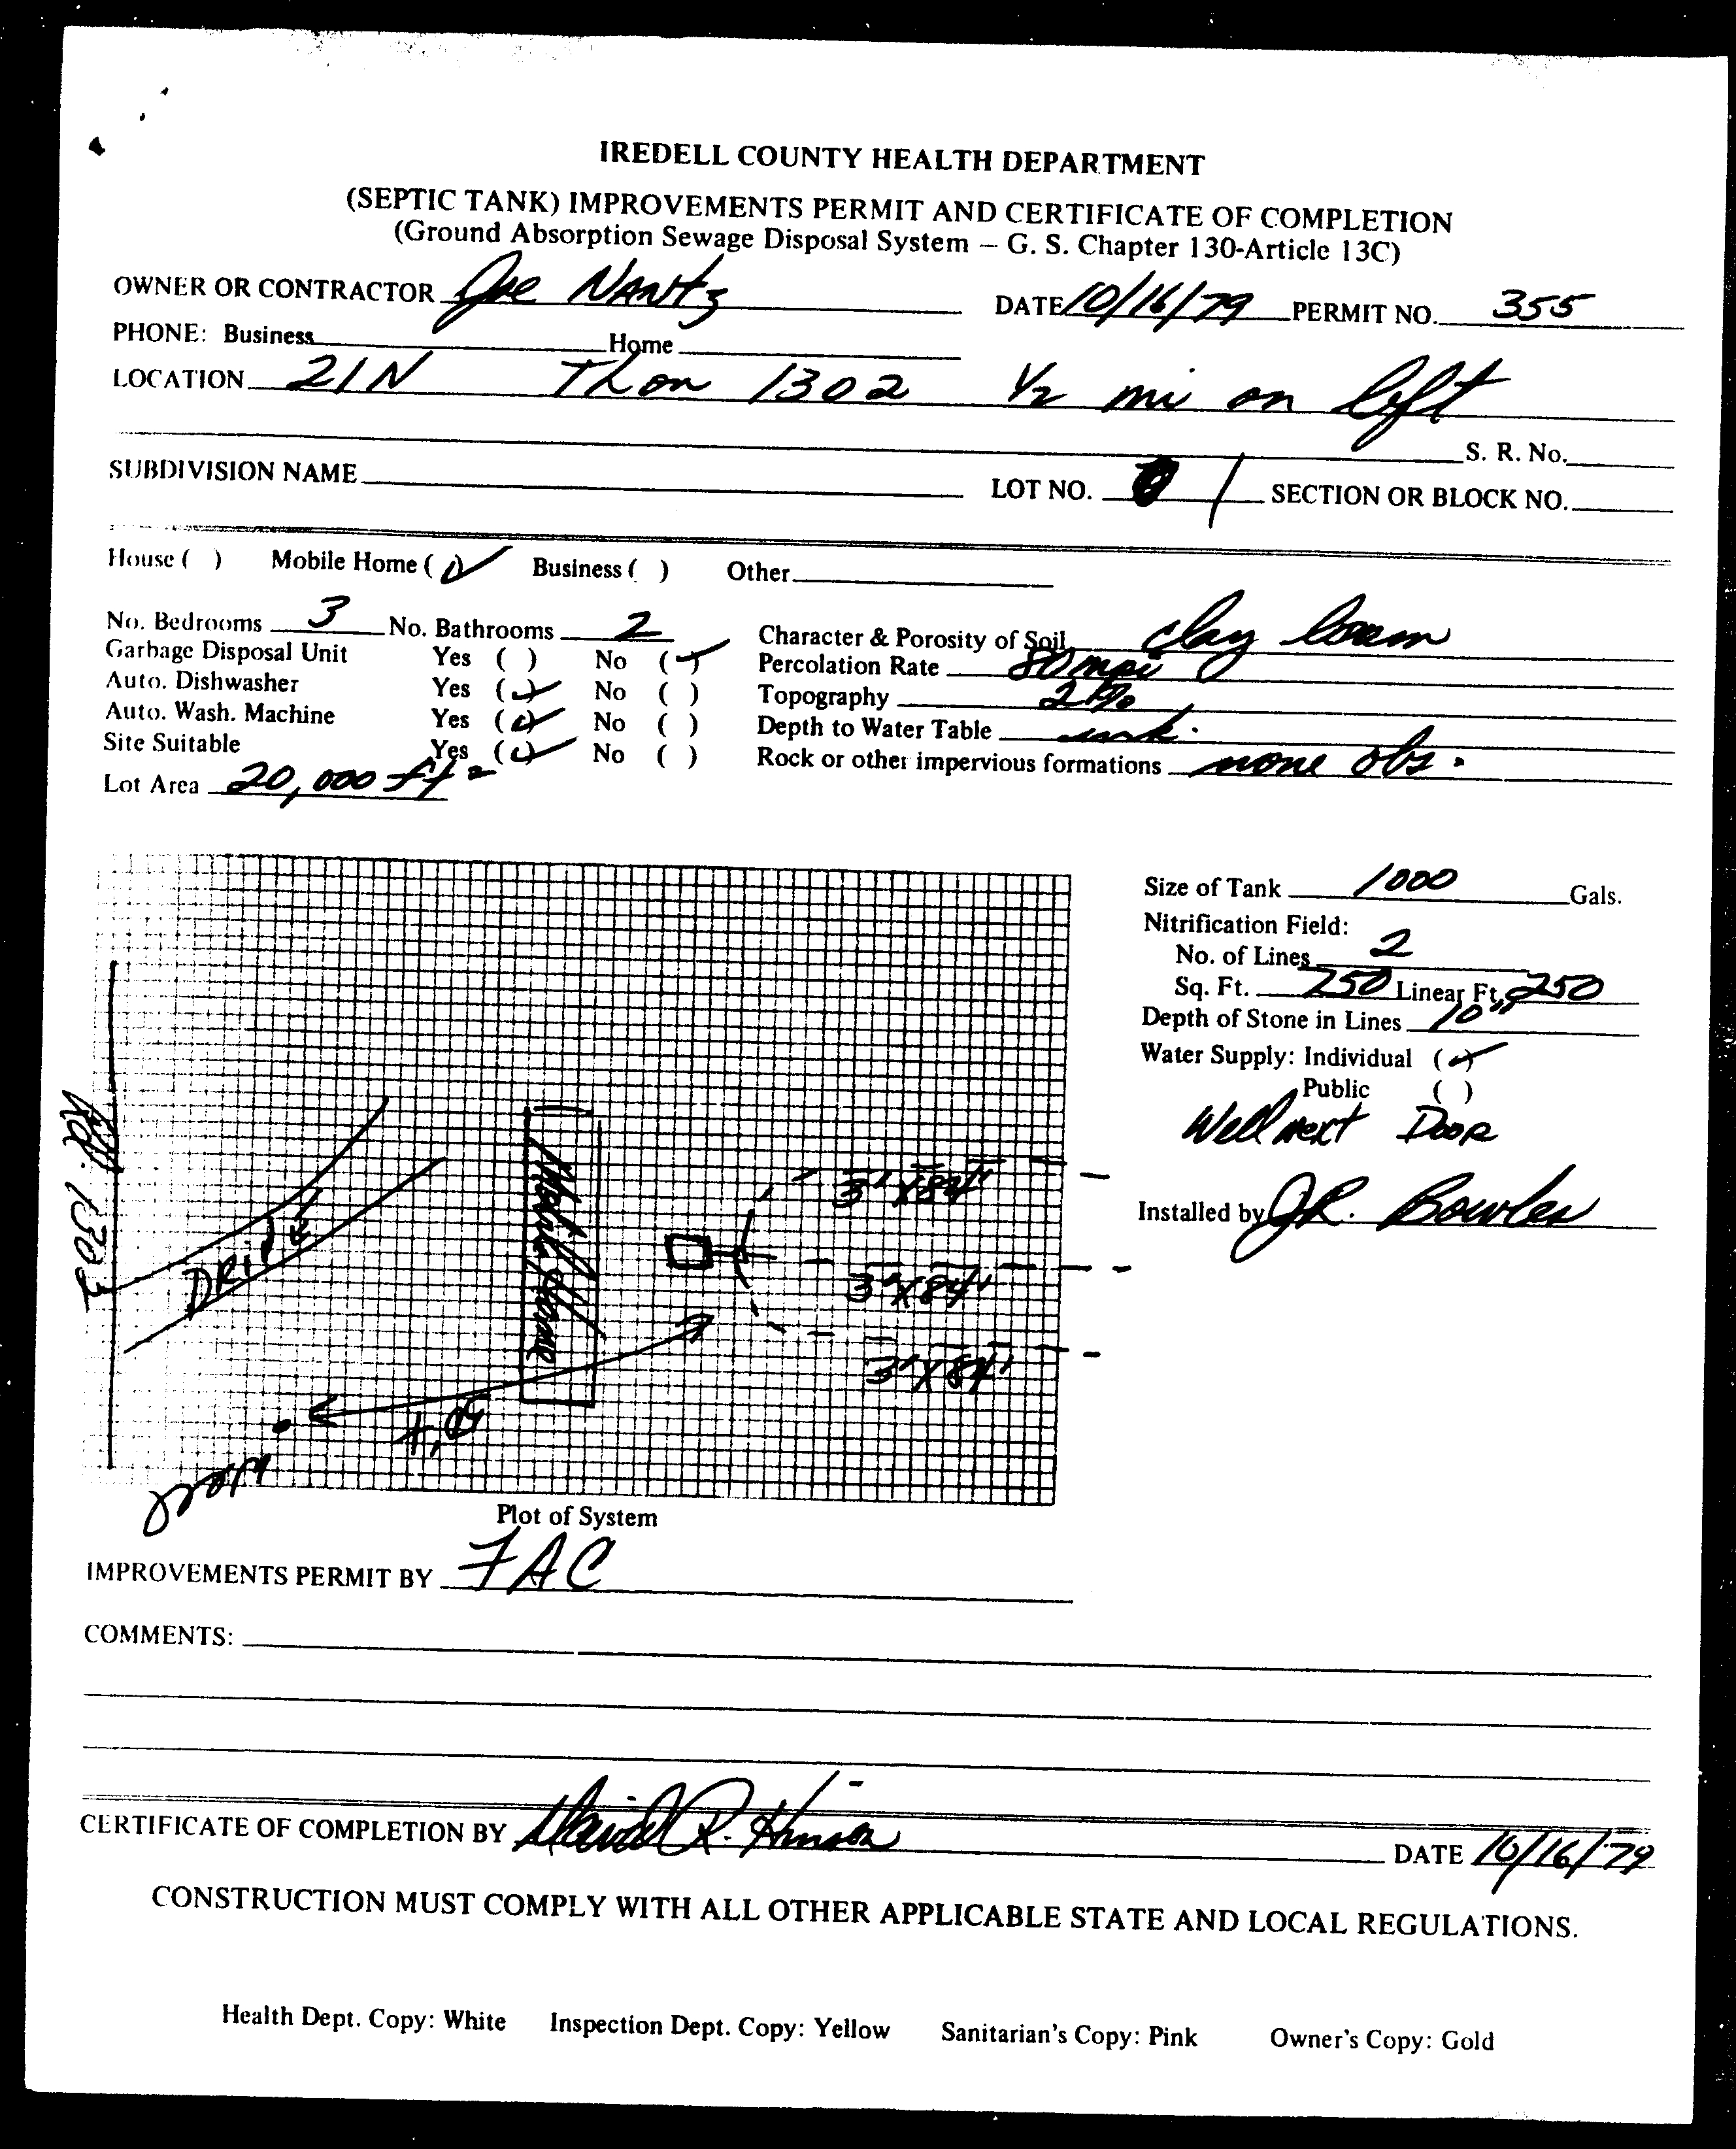 IREDELL COUNTY HEALTH DEPARTMENT
(SEPTIC TANK) IMPROVEMENTS PERMIT AND CERTIFICATE OF COMPLETION
(Ground Absorption Sewage Disposal System – G. S. Chapter 130-Article 13C)
OWNER OR CONTRACTOR Joe Nantz DATE 10/16/79 PERMIT NO. 355
PHONE: Business Home
LOCATION 21N TL on 1302 1/2 mi on left
S. R. No.
SUBDIVISION NAME LOT NO. 1 SECTION OR BLOCK NO.
House ( ) Mobile Home (✓) Business ( ) Other
No. Bedrooms 3 No. Bathrooms 2 Character & Porosity of Soil clay loam
Garbage Disposal Unit Yes ( ) No (✓) Percolation Rate 80 mpi
Auto. Dishwasher Yes (✓) No ( ) Topography
Auto. Wash. Machine Yes (✓) No ( ) Depth to Water Table unk.
Site Suitable Yes (✓) No ( ) Rock or other impervious formations none obs.
Lot Area 20,000 ft²
Size of Tank 1000 Gals.
Nitrification Field:
No. of Lines 2
Sq. Ft. 750 Linear Ft. 250
Depth of Stone in Lines 10"
Water Supply: Individual (✓)
Public ( )
Well next Door
Installed by J.R. Bowles
Rd. 1303
DRIVE
Mobile Home
3' X 84'
3' X 84'
3' X 84'
well
Plot of System
IMPROVEMENTS PERMIT BY FAC
COMMENTS:
CERTIFICATE OF COMPLETION BY David R. Hinson DATE 10/16/79
CONSTRUCTION MUST COMPLY WITH ALL OTHER APPLICABLE STATE AND LOCAL REGULATIONS.
Health Dept. Copy: White Inspection Dept. Copy: Yellow Sanitarian's Copy: Pink Owner's Copy: Gold